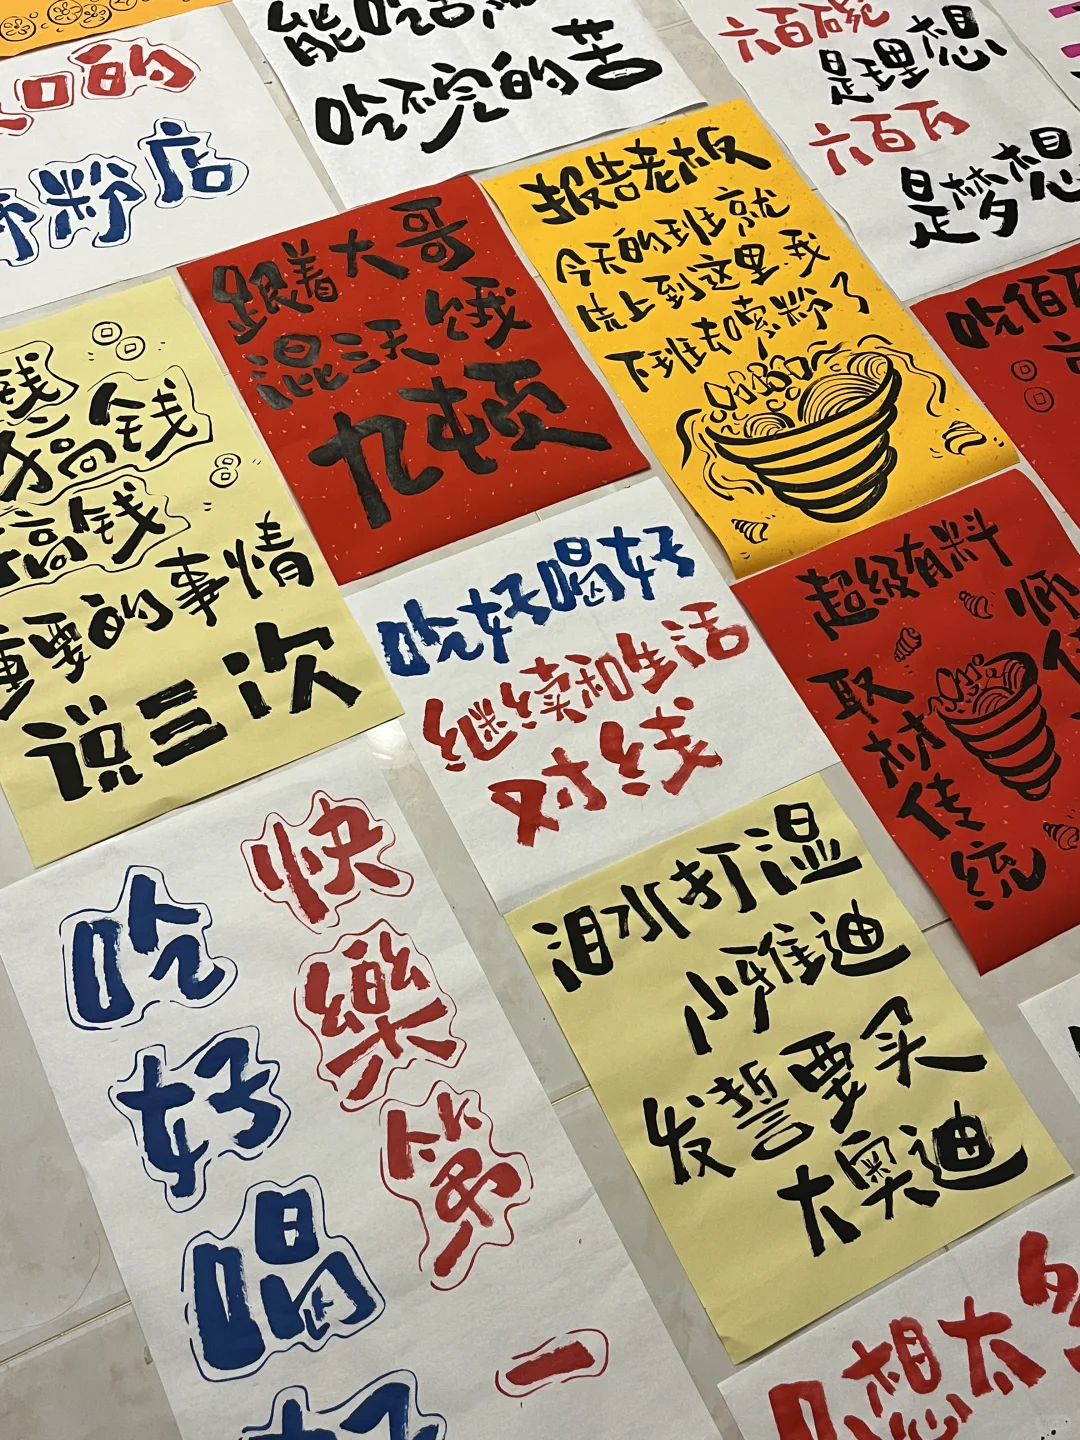 口的
师粉店
能吃苦
吃不完的苦
六百碗
是理想
六百万
是梦想
跟着大哥
混三天饿
九顿
报告老板
今天的班就
先上到这里 我
下班去嗦粉了
吃佰
钱
搞钱
搞钱
重要的事情
说三次
吃好喝好
继续和生活
对线
超级有料
师
取材传统
泪水打湿
小雅迪
发誓要买
大奥迪
吃好喝好
快樂第一
想太多